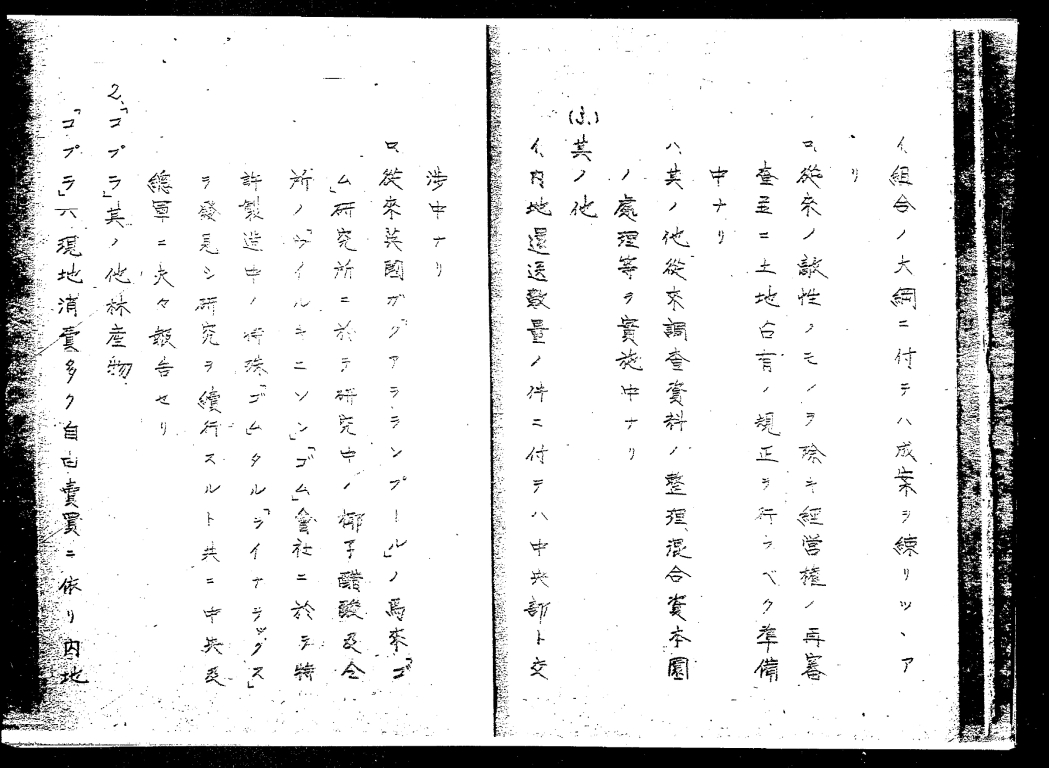 イ、組合ノ大綱ニ付テハ成案ヲ練リツヽア
リ
ロ、従来ノ敵性ノモノヲ除キ経営権ノ再審
査並ニ土地占有ノ規正ヲ行フベク準備
中ナリ
ハ、其ノ他従来調査資料ノ整理混合資本園
ノ處理等ヲ實施中ナリ
其ノ他
イ、内地還送数量ノ件ニ付テハ中央部ト交
渉中ナリ
ロ、従来英國ガ「クアラランプール」ノ馬来「ゴ
ム」研究所ニ於テ研究中ノ椰子醋酸及仝
所ノ「ウイルキンソン」「ゴム」會社ニ於テ特
許製造中ノ特殊「ゴム」タル「ライナテックス」
ヲ發見シ研究ヲ續行スルト共ニ中央及
總軍ニ夫々報告セリ
2、「コプラ」其ノ他林産物
「コプラ」ハ現地消費多ク自由賣買ニ依リ内地